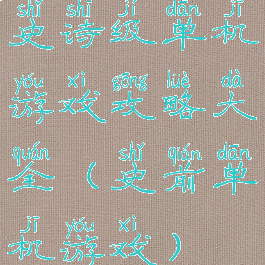 shǐ shī jí dān jī
史诗级单机
yóu xì gōng lüè dà
游戏攻略大
quán shǐ qián dān
全（史前单
jī yóu xì
机游戏）